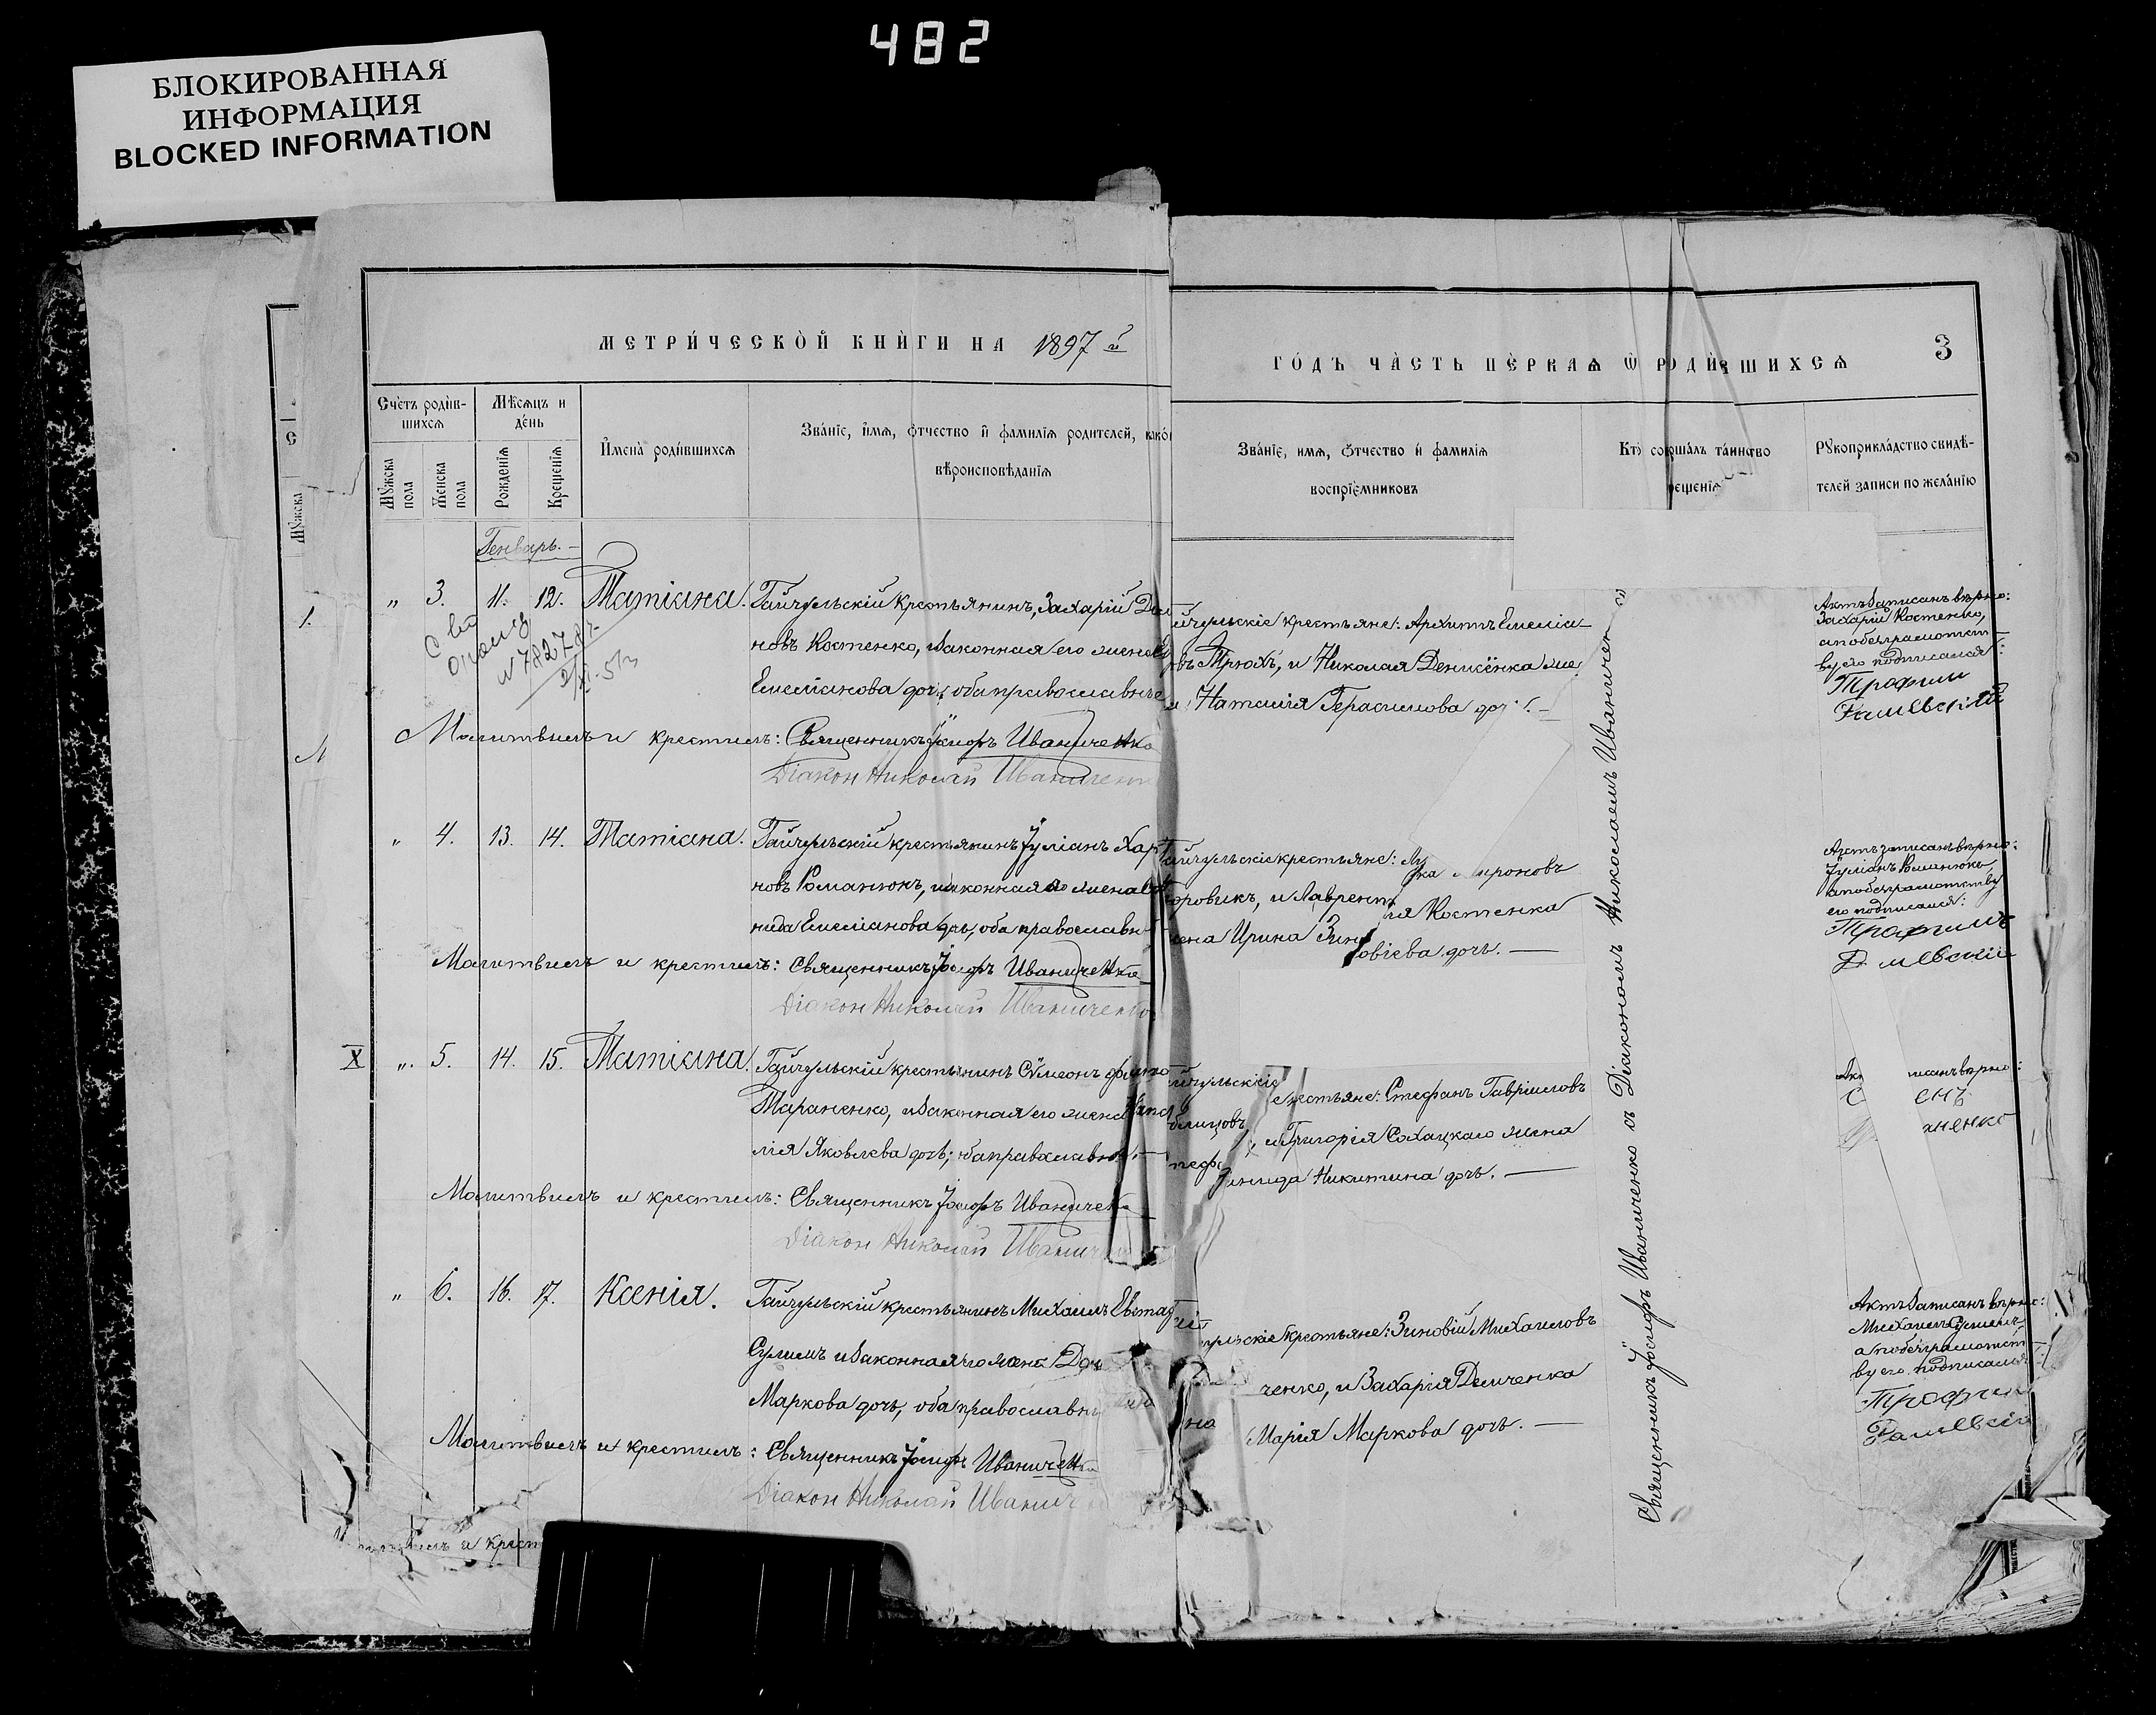 482
БЛОКИРОВАННАЯ
ИНФОРМАЦИЯ
BLOCKED INFORMATION
МЕТРИ́ЧЕСКО̀Й КНЍГИ НА 1897 й
ГО́ДЪ ЧА̀СТЬ ПЀРВАѦ Ѡ РОДИ́ВШИХСѦ
3
Сче́тъ роди́в-
шихсѧ
Мѣ́сѧцъ и
де́нь
Мꙋ́жска
пола
Же́нска
пола
Рожденїѧ
Крещенїѧ
И҆мена̀ роди́вшихсѧ
Зва́нїе, и҆́мѧ, ѻ҆́тчество и҆ фамилїѧ родителей, како́
вѣроисповѣ́данїѧ
Зва́нїе, имѧ, ѻ҆́тчество и҆ фамилїѧ
воспрїе́мниковъ
Кто̀ соверша́лъ та́инство
крещенїѧ
Рꙋкоприкла́дство свидѣ́-
телей записи по жела́нїю
Генварь. —
„ 3. 11. 12. Татіана.
Гайчульскій крестьянинъ, Захарій
новъ Костенко, и законная его жена
Емеліанова дочь, оба православные
йчульскіе крестьяне: Архипъ Емеліа-
въ Трюхъ, и Николая Денисенка же
Наталія Герасимова дочь. —
Актъ записанъ вѣрно:
Захарій Костенко,
а по безграмотст-
ву его подписался:
Трофим
Молитвилъ и крестилъ: Священникъ Іосифъ Иваниченко
Діакон Николай Иваниченко
„ 4. 13. 14. Татіана.
Гайчульскій крестьянинъ Іуліанъ Хар
новъ Романюкъ, и законная его жена
нида Емеліанова дочь, оба православн
айчульскіе крестьяне: Лука Мироновъ
оровикъ, и Лаврентія Костенка
жена Ирина Зиновіева дочь. —
Актъ записанъ вѣрно:
Іуліанъ Романюкъ,
а по безграмотству
его подписался:
Трофимъ
Молитвилъ и крестилъ: Священникъ Іосифъ Иваниченко
Діакон Николай Иваниченко
X „ 5. 14. 15. Татіана.
Гайчульскій крестьянинъ Сѵмеонъ
Тараненко, и законная его жена
лія Яковлева дочь; оба православн
йчульскіе крестьяне: Стефанъ Гавриловъ
и Григорія Сохацкаго жена
Никитина дочь. —
исанъ вѣрно:
аненко
Молитвилъ и крестилъ: Священникъ Іосифъ Иваниченко
Діакон Николай Иванич
„ 6. 16. 17. Ксенія.
Гайчульскій крестьянинъ Михаилъ Евстаф
Сулимъ и законная его жена
Маркова дочь, оба православн
чульскіе крестьяне: Зиновій Михаиловъ
ченко, и Захарія Демченка
на Марія Маркова дочь. —
Актъ записанъ вѣрно:
Михаилъ Сулимъ,
а по безграмотст-
ву его подписался:
Трофим
Молитвилъ и крестилъ: Священникъ Іосифъ Иваниченко
Діакон Николай Иванич
Священникъ Іосифъ Иваниченко съ Діакономъ Николаемъ Иваничен
и крест